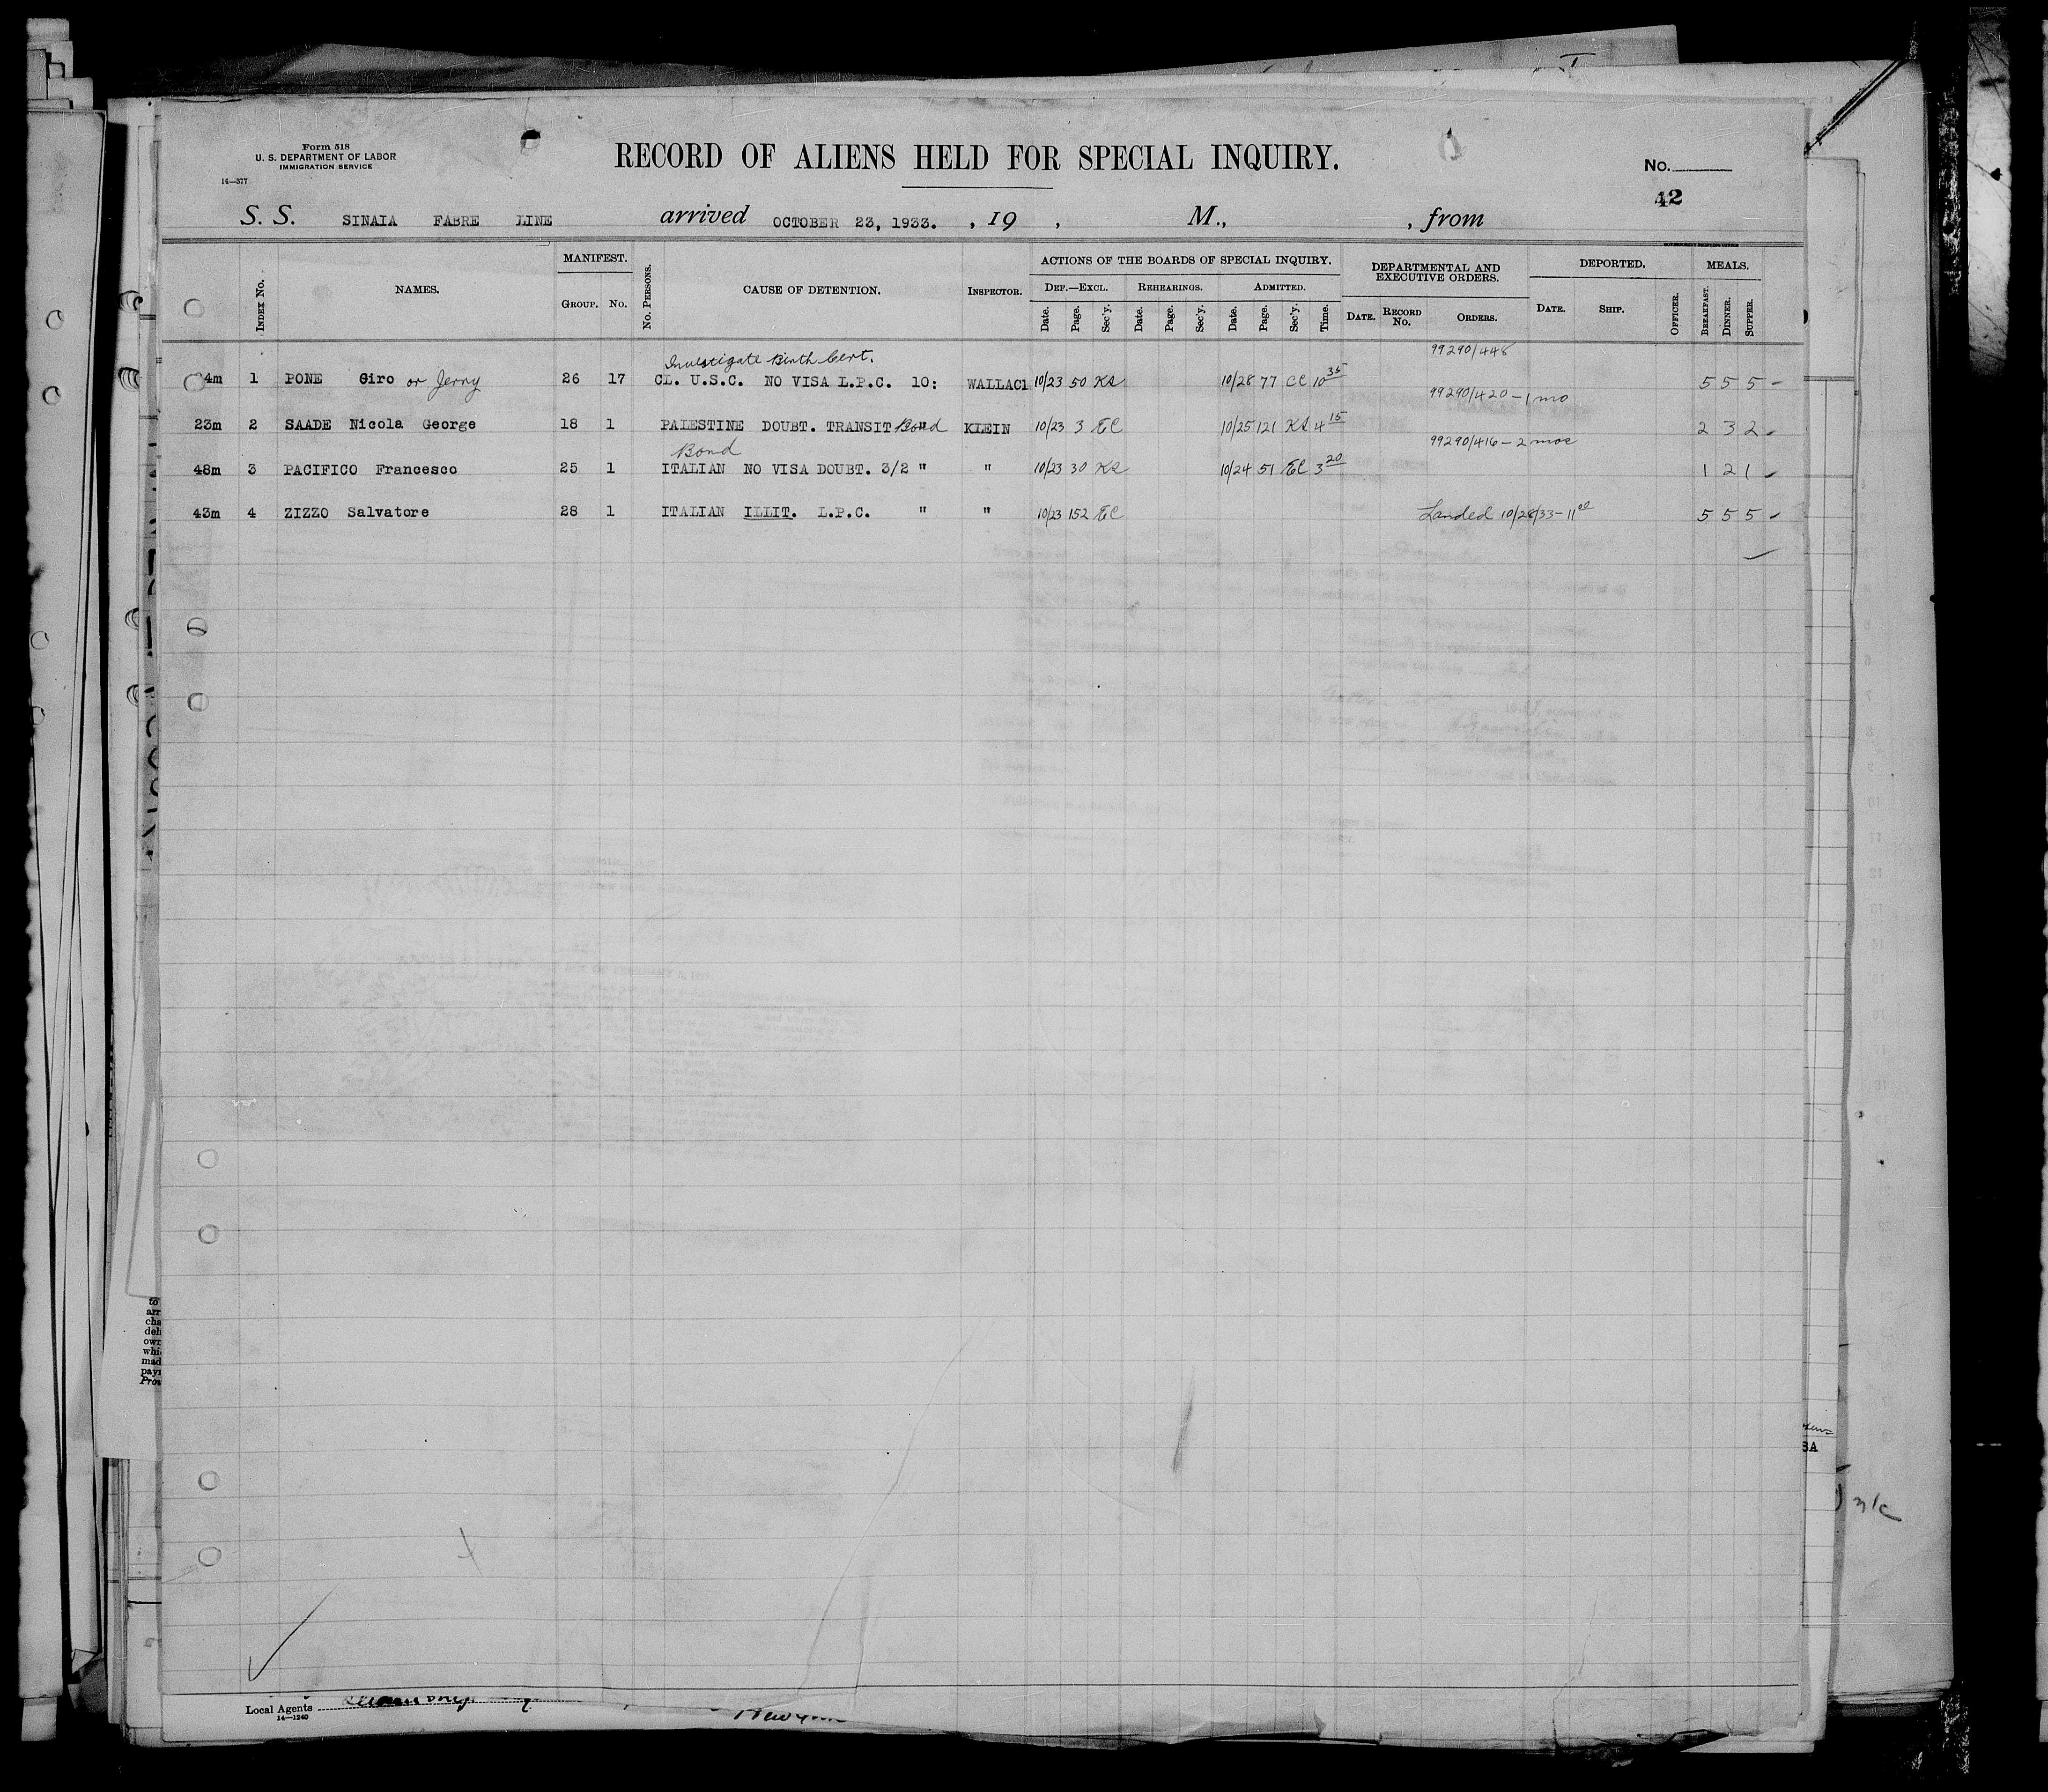 Form 518
U. S. DEPARTMENT OF LABOR
IMMIGRATION SERVICE
14—377
RECORD OF ALIENS HELD FOR SPECIAL INQUIRY.
No.
42
S. S. SINAIA FABRE LINE arrived OCTOBER 23, 1933. , 19 , M., , from
MANIFEST. ACTIONS OF THE BOARDS OF SPECIAL INQUIRY. DEPARTMENTAL AND EXECUTIVE ORDERS. DEPORTED. MEALS.
Index No. NAMES. Group. No. No. Persons. CAUSE OF DETENTION. Inspector. Def.—Excl. Rehearings. Admitted.
Date. Page. Sec'y. Date. Page. Sec'y. Date. Page. Sec'y. Time. Date. Record No. Orders. Date. Ship. Officer. Breakfast. Dinner. Supper.
Investigate Birth Cert. 99290/448
4m 1 PONE Giro or Jerry 26 17 CL. U.S.C. NO VISA L.P.C. 10: WALLACE 10/23 50 KS 10/28 77 CC 10 35 5 5 5 -
99290/420 - 1 mo
23m 2 SAADE Nicola George 18 1 PALESTINE DOUBT. TRANSIT " Bond KLEIN 10/23 3 EC 10/25 121 KS 4 15 2 3 2
Bond 99290/416 - 2 mos
48m 3 PACIFICO Francesco 25 1 ITALIAN NO VISA DOUBT. 3/2 " " 10/23 30 KS 10/24 51 EC 3 20 1 2 1
43m 4 ZIZZO Salvatore 28 1 ITALIAN ILLIT. L.P.C. " " 10/23 152 EC Landed 10/28/33 - 11 5 5 5
to
arr
cha
deli
own
whi
mad
payn
Prov
3A
Local Agents
14—1240